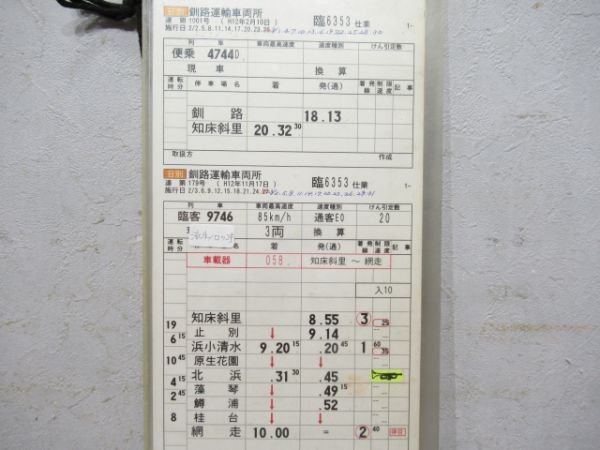 日別 釧路運輸車両所 臨6353仕業
運 第1001号 (H12年2月10日) 1-
施行日 2/2.5.8.11.14.17.20.23.26
列車 車両最高速度 速度種別 けん引定数
便乗 4744D
現車 換算
運転時分 停車場名 着 発(通) 着発線 制限速度 記事
釧路 18.13
知床斜里 20.32 30
取扱方 作成
日別 釧路運輸車両所 臨6353仕業
運 第179号 (H12年11月17日) 1-
施行日 2/3.6.9.12.15.18.21.24
列車 車両最高速度 速度種別 けん引定数
臨客 9746 85km/h 通客E0 20
3両 換算
運転時分 停車場名 着 発(通) 着発線 制限速度 記事
車載器 058. 知床斜里 ~ 網走
入10
知床斜里 8.55 3 25
19
止別 ↓ 9.14
6 15
浜小清水 9.20 15 .20 45 1 60 35
原生花園 ↓ ↓
10 45
北浜 .31 30 .45
4 15
藻琴 ↓ .49 15
2 45
鱒浦 ↓ .52
桂台 ↓ ↓
8
網走 10.00 = 2 40